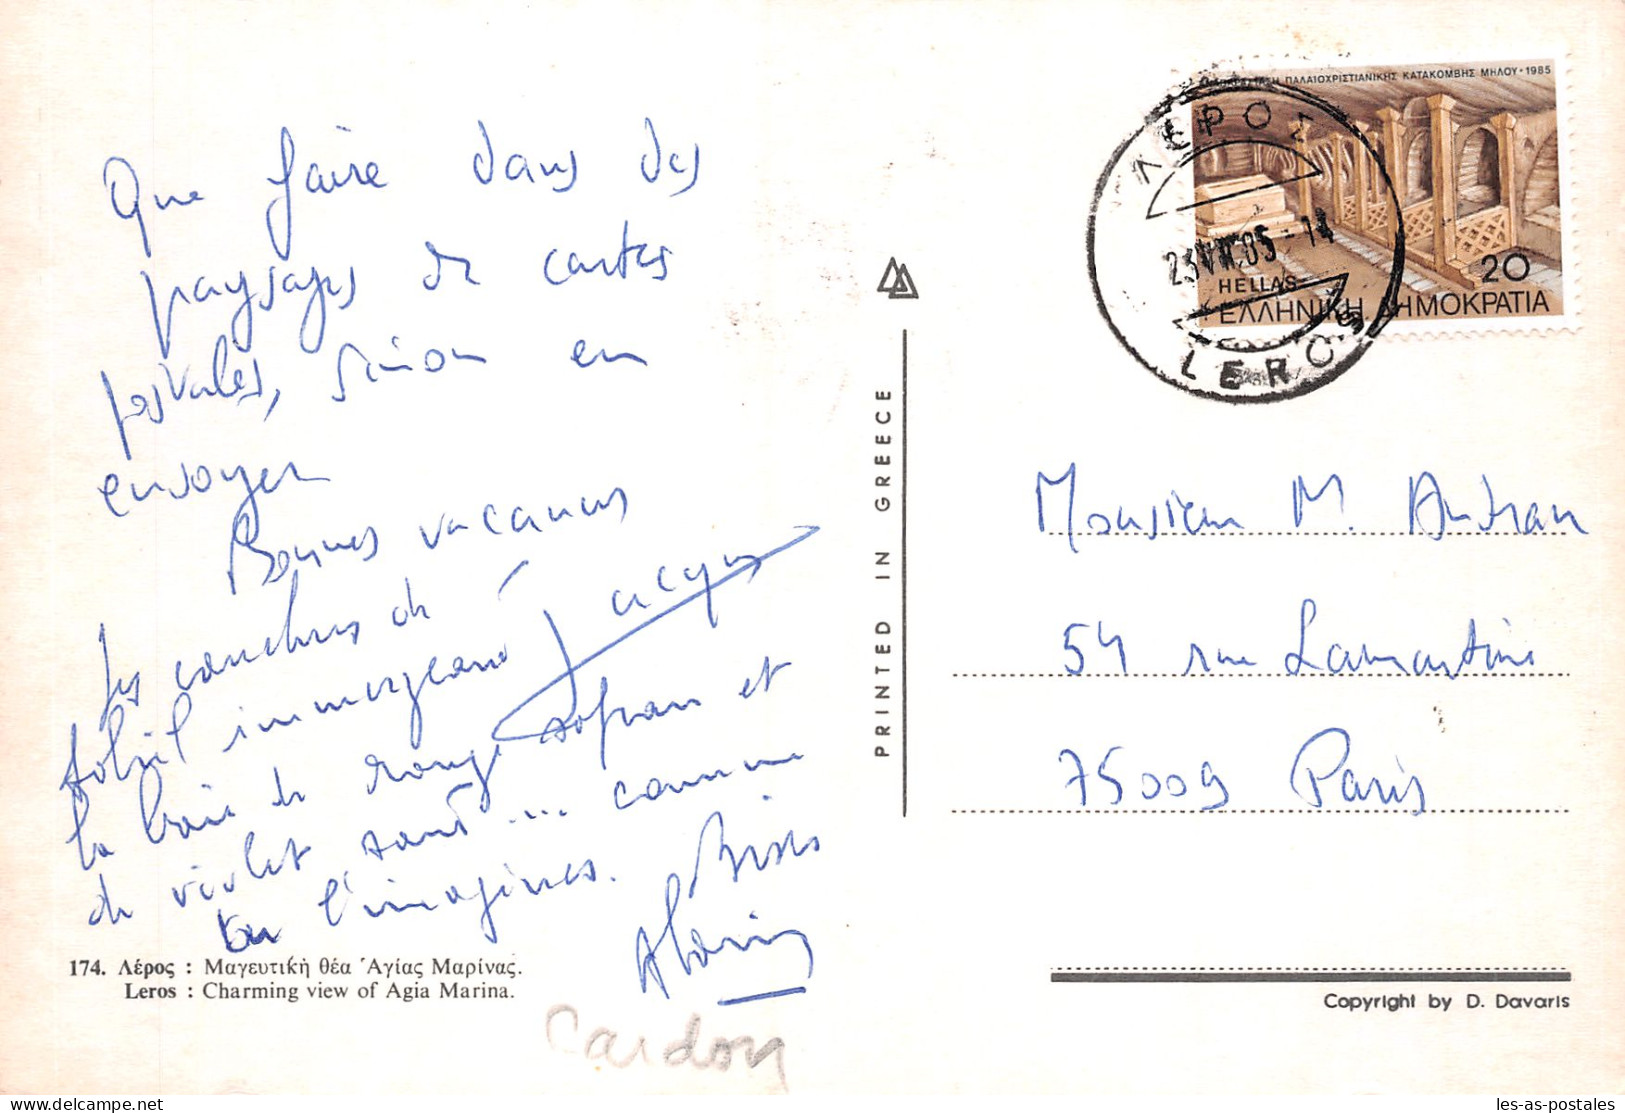 Que faire dans des
paysages de cartes
postales, sinon en
envoyer
Bonnes vacances
Jacques
Les couchers de
soleil immergeant
la baie de rouge safran et
de violet sont ... comme
tu l'imagines. Bises
Alain
174. Λέρος : Μαγευτική θέα Ἁγίας Μαρίνας.
Leros : Charming view of Agia Marina.
Cardon
PRINTED IN GREECE
ΠΑΛΑΙΟΧΡΙΣΤΙΑΝΙΚΗΣ ΚΑΤΑΚΟΜΒΗΣ ΜΗΛΟΥ • 1985
20
HELLAS
ΕΛΛΗΝΙΚΗ ΔΗΜΟΚΡΑΤΙΑ
ΛΕΡΟΣ
LEROS
Monsieur M. Autran
54 rue Lamartine
75009 Paris
Copyright by D. Davaris
les-as-postales